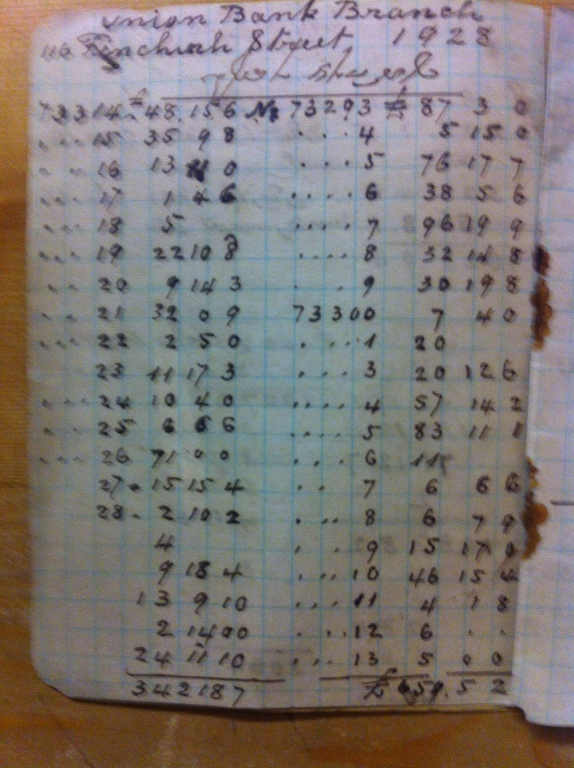 Union Bank Branch
116 Finchurh Street, 1928
73314 = 48.15 6 No 73293 £ 87 3 0
...15 35 9 8 ....4 5 15 0
...16 13 11 0 ....5 76 17 7
...17 1 4 6 ....6 38 5 6
...18 5 ....7 96 19 9
...19 22 10 8 ....8 32 14 8
...20 9 14 3 ..9 30 19 8
...21 32 0 9 73300 7 4 0
...22 2 5 0 ....1 20
23 11 17 3 ....3 20 12 6
...24 10 4 0 ....4 57 14 2
...25 6 6 6 ....5 83 11 1
...26 71 0 0 ...6 11
27 - 15 15 4 ..7 6 6 6
28 - 2 10 2 ...8 6 7 9
4 ...9 15 17 0
9 18 4 ...10 46 15 4
13 9 10 ....11 4 1 8
2 14 00 ....12 6 . .
24 11 10 ...13 5 0 0
342 18 7 £ 659.5 2